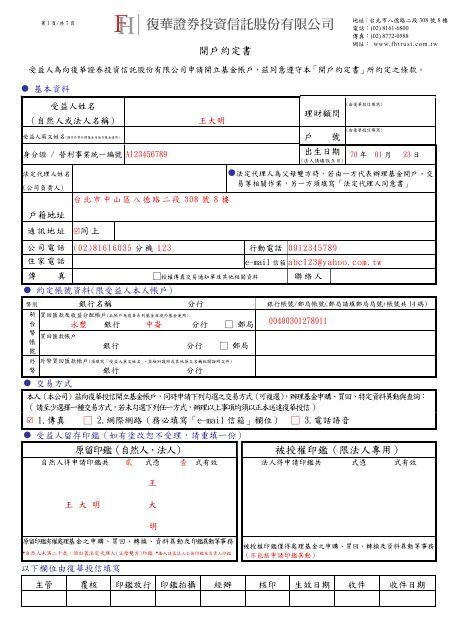 第 1 頁/共 7 頁
FH 復華證券投資信託股份有限公司
地址:台北市八德路二段 308 號 8 樓
電話:(02) 8161-6800
傳真:(02) 8772-0588
網址: www.fhtrust.com.tw
開戶約定書
受益人為向復華證券投資信託股份有限公司申請開立基金帳戶,茲同意遵守本「開戶約定書」所約定之條款。
● 基本資料
受益人姓名
(自然人或法人名稱)
王大明
理財顧問
戶 號
身分證 / 營利事業統一編號 A123456789
出生日期
70 年 01 月 23 日
法定代理人姓名
(公司負責人)
●法定代理人為父母雙方時,若由一方代表辦理基金開戶、交
易等相關作業,另一方須填寫「法定代理人同意書」
戶籍地址
台北市中山區八德路二段 308 號 8 樓
通訊地址 ☑同上
公司電話 (02)81616035 分機 123 行動電話 0912345789
住家電話 e-mail 信箱 abc123@yahoo.com.tw
傳 真 □授權傳真交易通知單及其他相關資料 聯絡人
● 約定帳號資料(限受益人本人帳戶)
幣別 銀行名稱 分行 銀行帳號/郵局帳號(郵局請填郵局局號+帳號共 14 碼)
新台幣帳號
永豐 銀行 中崙 分行 □ 郵局 00400301278911
買回匯款帳戶
銀行 分行 □ 郵局
外幣
銀行 分行
● 交易方式
本人(本公司)茲向復華投信開立基金帳戶,同時申請下列勾選之交易方式(可複選),辦理基金申購、買回、特定資料異動與查詢:
(請至少選擇一種交易方式,若未勾選下列任一方式,辦理以上事項均須以正本送達復華投信)
☑ 1.傳真 □ 2.網際網路(務必填寫「e-mail 信箱」欄位) □ 3.電話語音
● 受益人留存印鑑(如有塗改恕不受理,請重填一份)
原留印鑑(自然人、法人) 被授權印鑑(限法人專用)
自然人得申請印鑑共 貳 式憑 壹 式有效
法人得申請印鑑共 式憑 式有效
王 大 明
王
大
明
原留印鑑有權處理基金之申購、買回、轉換、資料異動及印鑑異動等事務
被授權印鑑僅得處理基金之申購、買回、轉換及資料異動等事務
(不包括申請印鑑異動)
以下欄位由復華投信填寫
主管 覆核 印鑑放行 印鑑拍攝 經辦 核印 生效日期 收件 收件日期